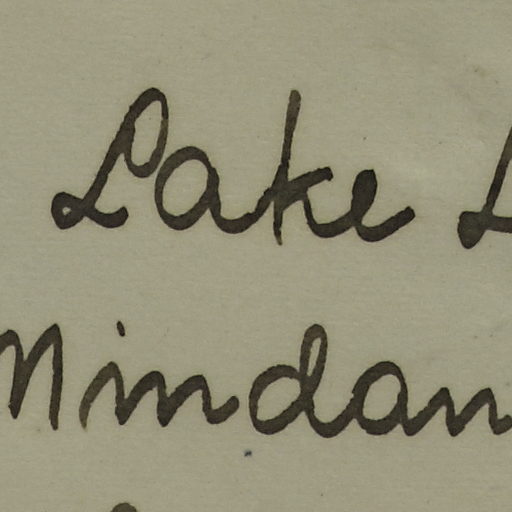 Lake L
Mindan